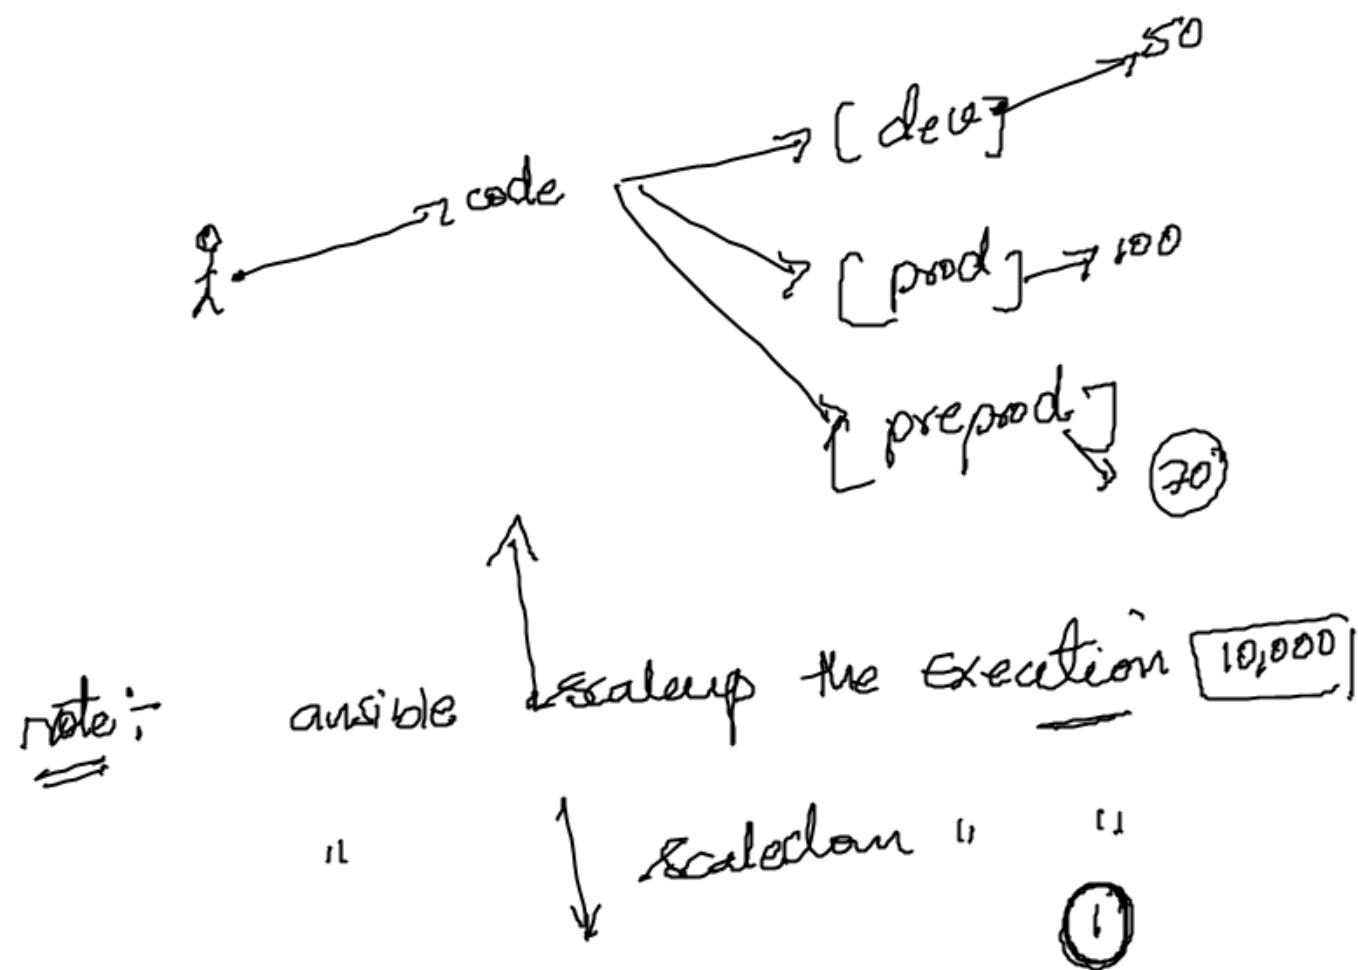 50
[dev]
code
[prod] 100
[preprod]
70
note:- ansible scaleup the Execution 10,000
" scaledown " "
1